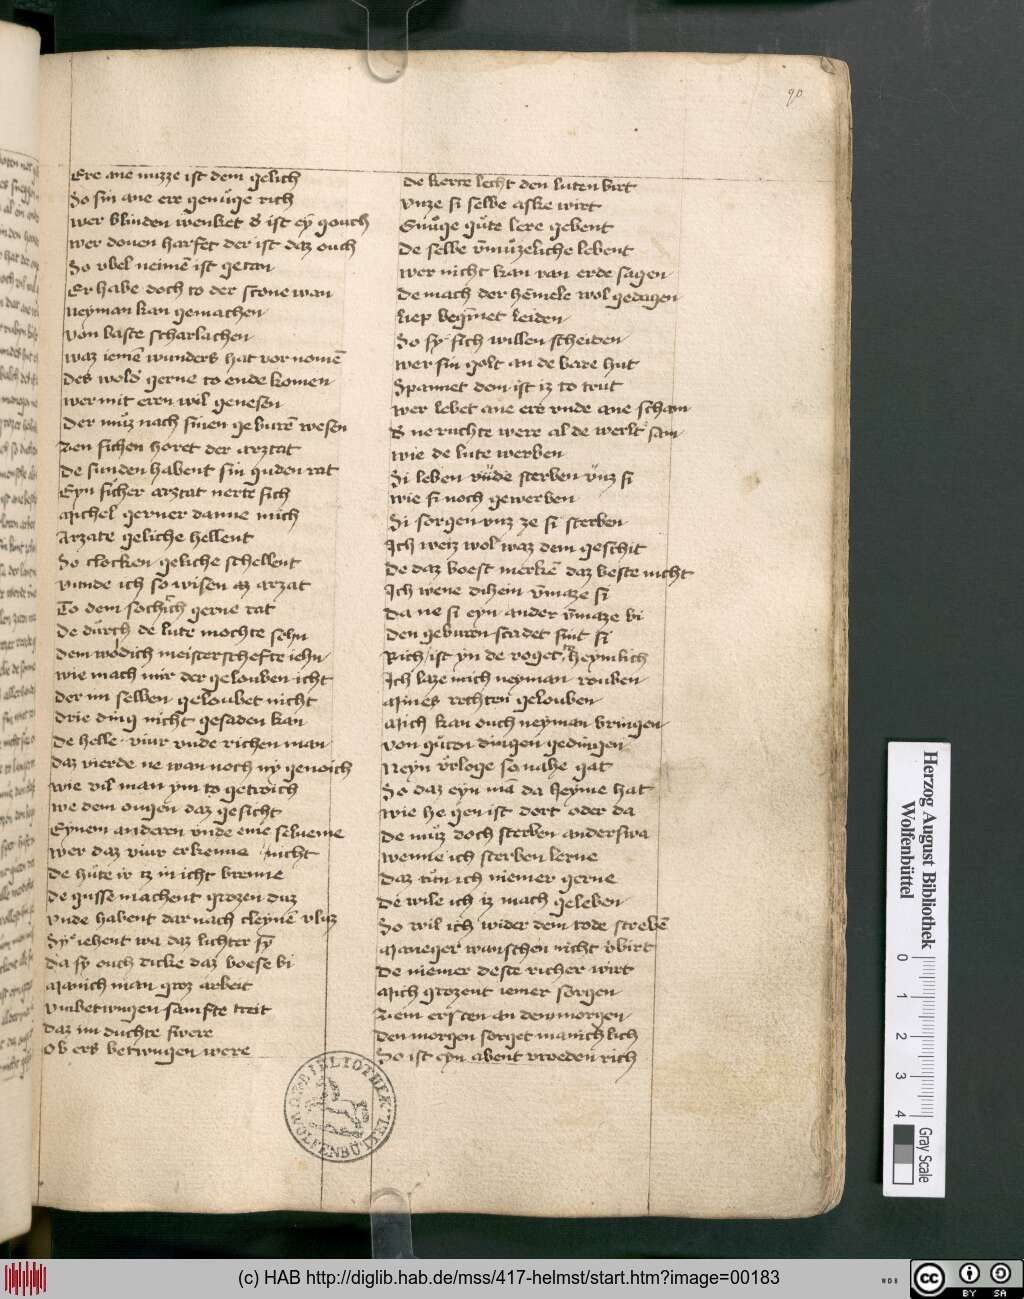 90
Ere ane nuzze ist dem gelich
So sin ane ere genůge rich
Wer blinden wenket d' ist eÿ gouch
Wer douen harfet der ist daz ouch
So vbel neimē ist getan
Er habe doch to der scone wan
Neyman kan gemachen
Von baste scharlachen
Waz iemē wunders hat vor nomē
Des wold' gerne to ende komen
Wer mit eren wil genesen
Der můz nach sinen geburē wesen
Den sichen horet der arztat
De sunden habent sin guden rat
Eyn sicher arztat nerte sich
Michel gerner danne mich
Arzate geliche hellent
So clocken geliche schellent
Vunde ich so wisen az arzat
To dem sochich gerne rat
De durch de lute mochte sehn
Dem wodich meisterschefte iehn
Wie mach mir der gelouben icht
Der im selben geloubet nicht
Drie ding nicht gesaden kan
De helle viur vnde richen man
Daz vierde ne wan noch nÿ genoich
Wie vil man ym to getroich
We dem ougen daz gesicht
Eynem anderen vnde eme selueme
Wer daz viur erkenne nicht
De hůte ir iz in icht brenne
De gusse machent grozen duz
Vnde habent dar nach cleynē vluz
Sÿ iehent wa daz luchter sÿ
Da sy ouch dicke daz boese bi
Manich man groz arbeit
Vmbetwngen samfte treit
Daz im duchte swere
Ob ers betwngen were
De kerce lecht den luten birt
Vnze si selbe aske wirt
Gnůge gůte lere gebent
De selbe v̄můzeliche lebent
Wer nicht kan van erde sagen
De mach der hēmele wol gedagen
Liep beḡnnet leiden
So sy sich willen scheiden
Wer sin golt an de bare hut
Spannet dem ist iz to trut
Wer lebet ane ere vnde ane scham
D ne ruchte were al de werlt sam
Wie de lute werben
Si leben vnde sterben vnz si
Wie si noch gewerben
Si sorgen vnz ze si sterben
Ich weiz wol waz dem geschit
De daz boest merkē daz beste nicht
Ich wene dihein v̄maze si
Da ne si eyn ander v̄maze bi
Den geburen stadet sint si
Rich ist yn de voget heymlich
Ich laze mich neyman rouben
Mines rechten gelouben
Mich kan ouch neyman bringen
Von gůten dingen gedingen
Neyn vrloge so nahe gat
So daz eyn mā da heyme hat
Wie he gen ist dort oder da
De můz doch sterben anderswa
Wenne ich sterben lerne
Daz tůn ich niemer gerne
De wile ich iz mach geleben
So wil ich wider dem tode strebē
Maneger wunschen nicht v̄birt
De niemer deste richer wirt
Mich grozent iemer sorgen
Zem ersten an dem morgen
Den morgen sorget manichlich
So ist eyn abent vroeden rich
DUC. BIBLIOTHEK. ZU WOLFENBÜTTEL
Herzog August Bibliothek
Wolfenbüttel
0 1 2 3 4
Gray Scale
(c) HAB http://diglib.hab.de/mss/417-helmst/start.htm?image=00183
WDB
cc BY SA